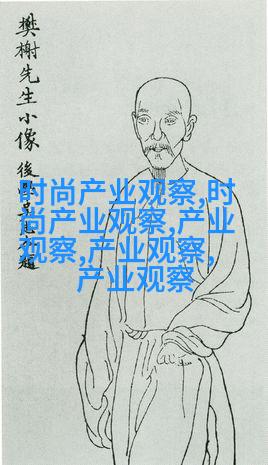 樊榭先生小像
後題
时尚产业观察,时
尚产业观察,产业
观察,产业观察,
产业观察